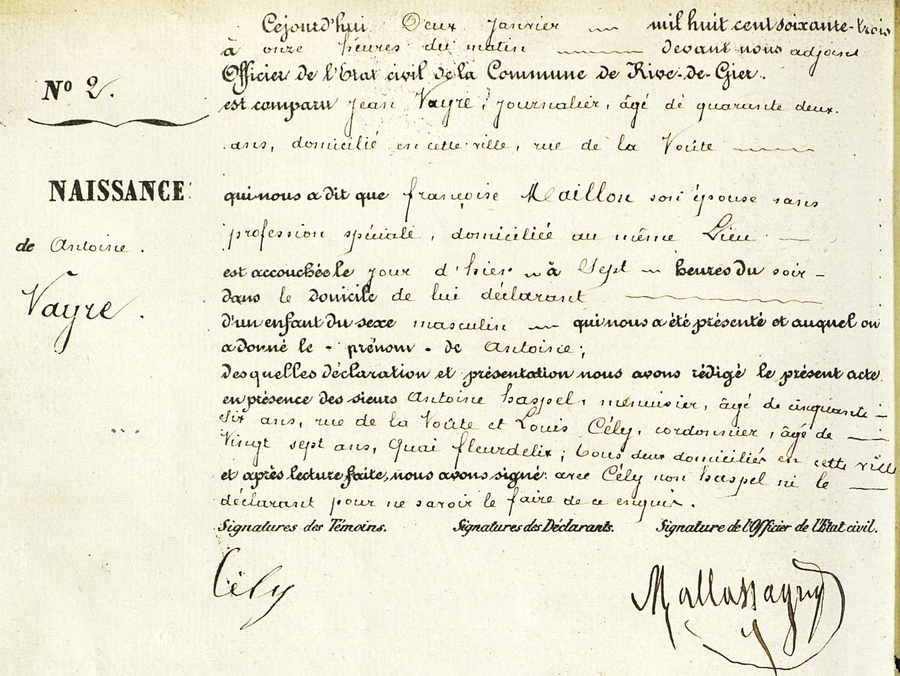 Cejourd'hui Deux Janvier mil huit cent soixante-trois
à onze heures du matin devant nous adjoint
Officier de l'État civil de la Commune de Rive-de-Gier.
Nº 2.
est comparu Jean Vayre, journalier, âgé de quarante deux
ans, domicilié en cette ville, rue de la Voûte
NAISSANCE
qui nous a dit que françoise Maillon son épouse sans
profession spéciale, domiciliée au même Lieu
de Antoine.
est accouchée le jour d'hier à Sept heures du soir
Vayre.
dans le domicile de lui déclarant
d'un enfant du sexe masculin qui nous a été présenté et auquel on
a donné le - prénom - de Antoine;
desquelles déclaration et présentation nous avons rédigé le présent acte
en présence des sieurs Antoine haspel, menuisier, âgé de cinquante
six ans, rue de la Voûte et Louis Cély, cordonnier, âgé de
Vingt sept ans, Quai fleurdelix; tous deux domiciliés en cette ville
et après lecture faite, nous avons signé avec Cély non haspel ni le
déclarant pour ne savoir le faire de ce enquis.
Signatures des Témoins. Signatures des Déclarants. Signature de l'Officier de l'État civil.
Cély